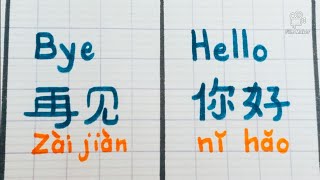 Bye
再见
Zài jiàn
Hello
你好
nǐ hǎo